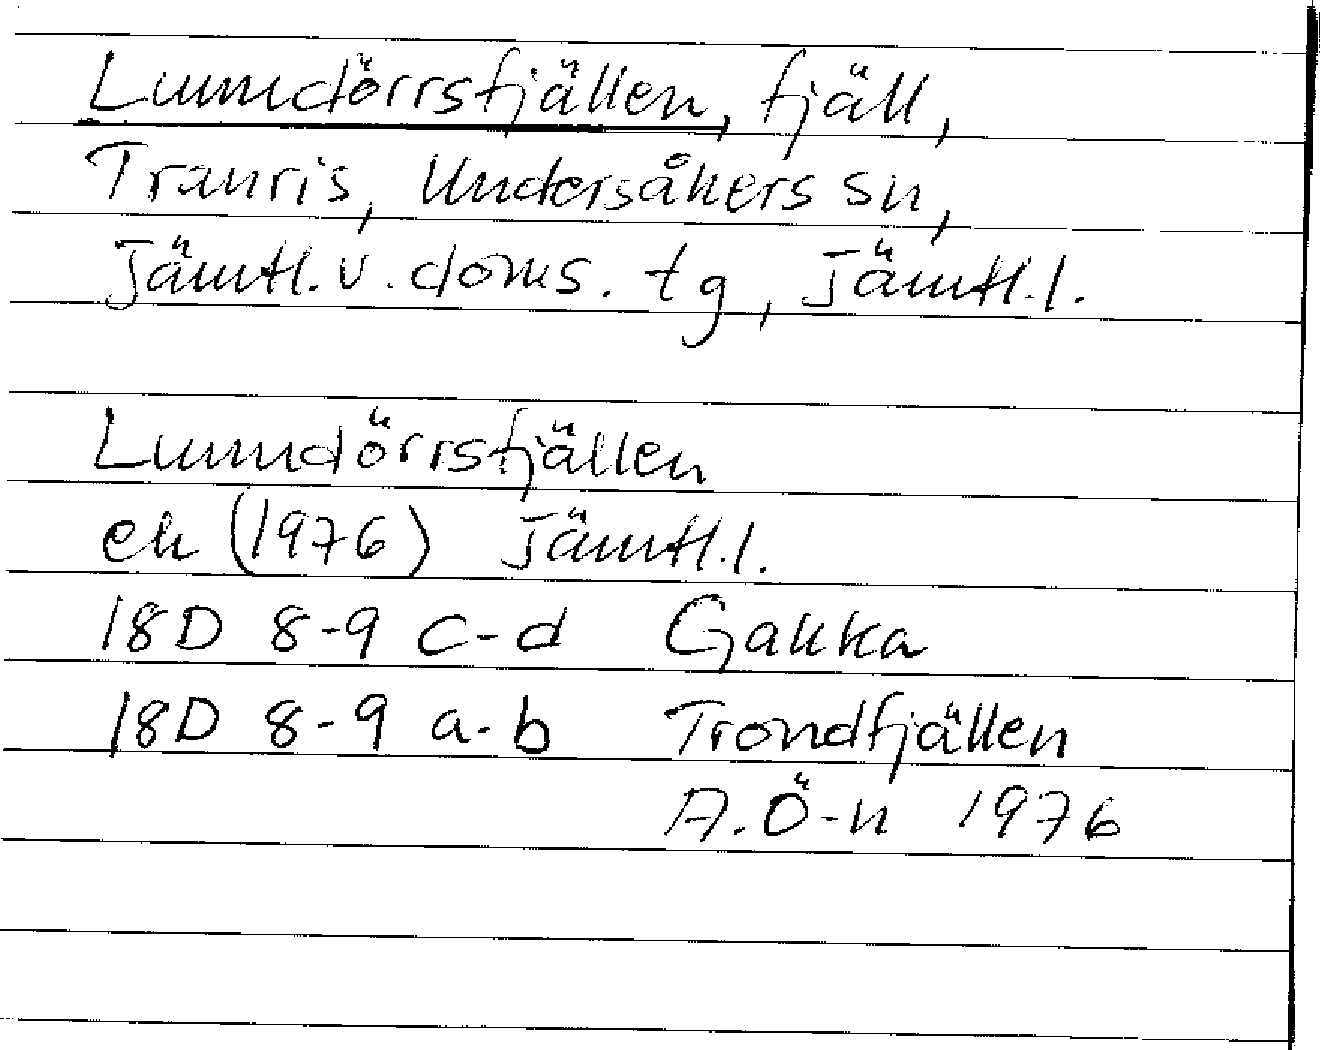 Lunndörrsfjällen, fjäll,
Tranris, Undersåkers sn,
Jämtl. v. doms. tg, Jämtl. l.
Lunndörrsfjällen
ek (1976) Jämtl. l.
18D 8-9 c-d Gakka
18D 8-9 a-b Trondfjällen
A. Ö-n 1976